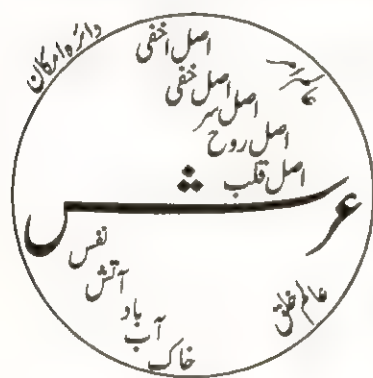 دائرہ امکان
اصل اخفی
اصل خفی
اصل سر
اصل روح
اصل قلب
عرش
نفس
آتش
باد
آب
خاک
عالم خلق